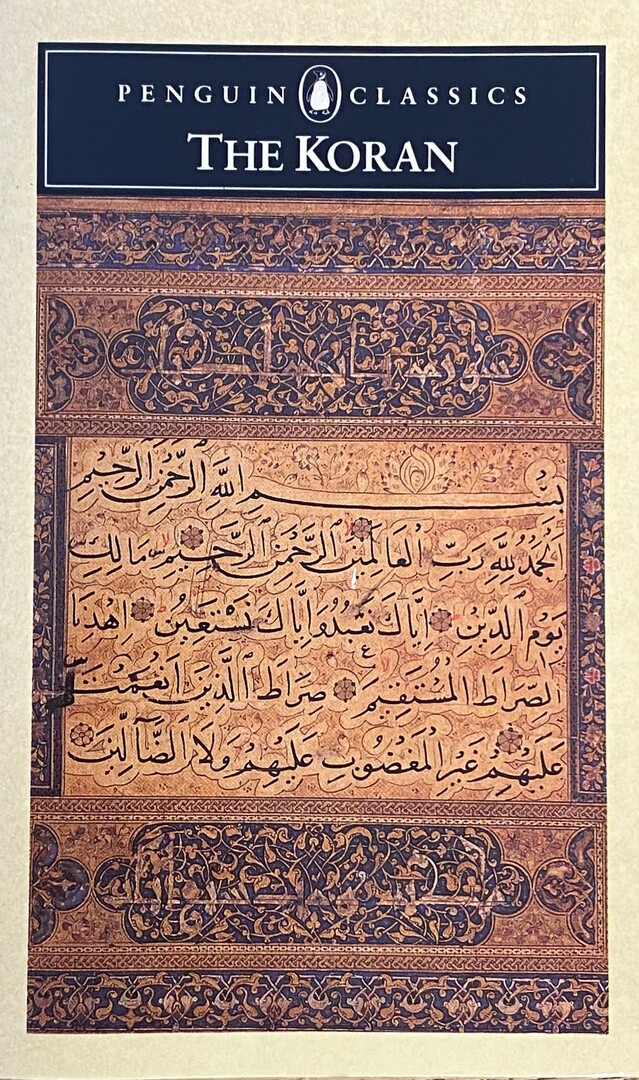 PENGUIN CLASSICS
THE KORAN
بِسْمِ اللَّهِ الرَّحْمَٰنِ الرَّحِيمِ
الْحَمْدُ لِلَّهِ رَبِّ الْعَالَمِينَ الرَّحْمَٰنِ الرَّحِيمِ مَالِكِ
يَوْمِ الدِّينِ إِيَّاكَ نَعْبُدُ وَإِيَّاكَ نَسْتَعِينُ اهْدِنَا
الصِّرَاطَ الْمُسْتَقِيمَ صِرَاطَ الَّذِينَ أَنْعَمْتَ
عَلَيْهِمْ غَيْرِ الْمَغْضُوبِ عَلَيْهِمْ وَلَا الضَّالِّينَ